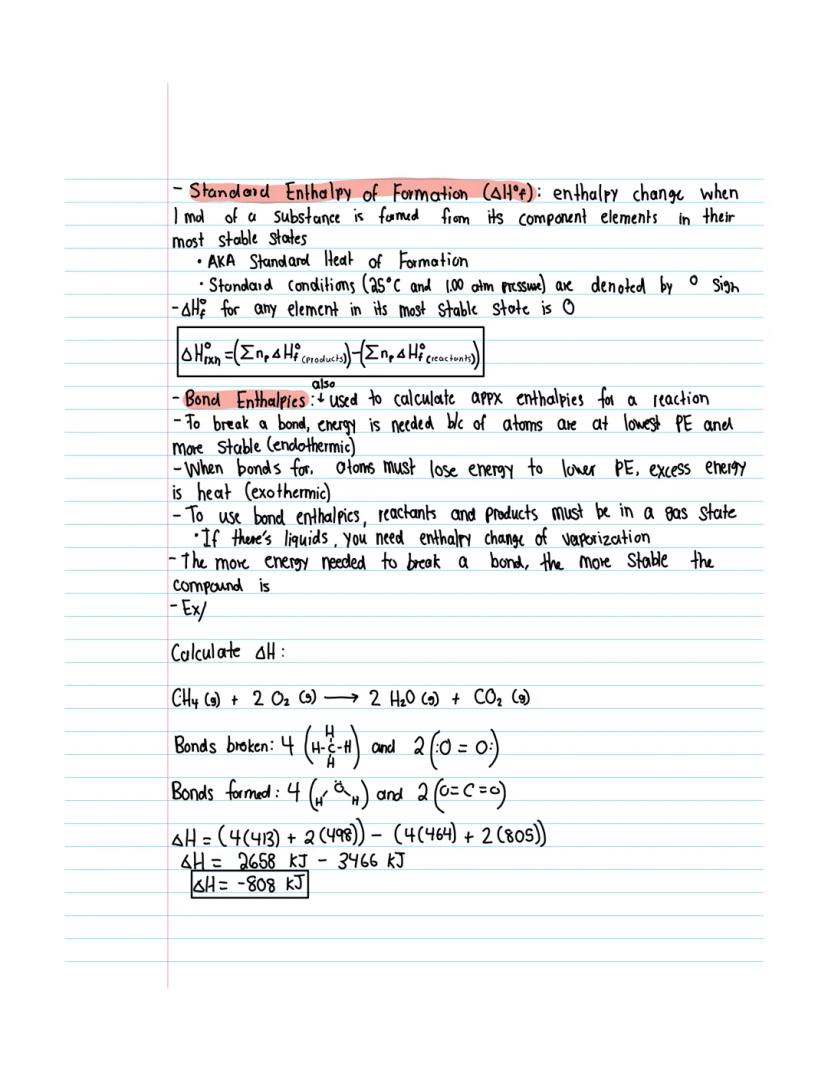 - Standard Enthalpy of Formation (ΔH°f): enthalpy change when
1 mol of a substance is formed from its component elements in their
most stable states
• AKA Standard Heat of Formation
• Standard conditions (25°C and 1.00 atm pressure) are denoted by ° sign
- ΔH°f for any element in its most stable state is 0
ΔH°rxn = (Σnp ΔH°f (products)) - (Σnp ΔH°f (reactants))
also
- Bond Enthalpies: ↓ used to calculate appx enthalpies for a reaction
- To break a bond, energy is needed b/c of atoms are at lowest PE and
more stable (endothermic)
- When bonds for, atoms must lose energy to lower PE, excess energy
is heat (exothermic)
- To use bond enthalpies, reactants and products must be in a gas state
• If there's liquids, you need enthalpy change of vaporization
- The more energy needed to break a bond, the more stable the
compound is
- Ex/
Calculate ΔH:
CH4 (g) + 2 O2 (g) → 2 H2O (g) + CO2 (g)
H
Bonds broken: 4 (H-C-H) and 2 (:O = O:)
H
Bonds formed: 4 (H O H) and 2 (O=C=O)
ΔH = (4(413) + 2(498)) - (4(464) + 2(805))
ΔH = 2658 KJ - 3466 KJ
ΔH = -808 KJ